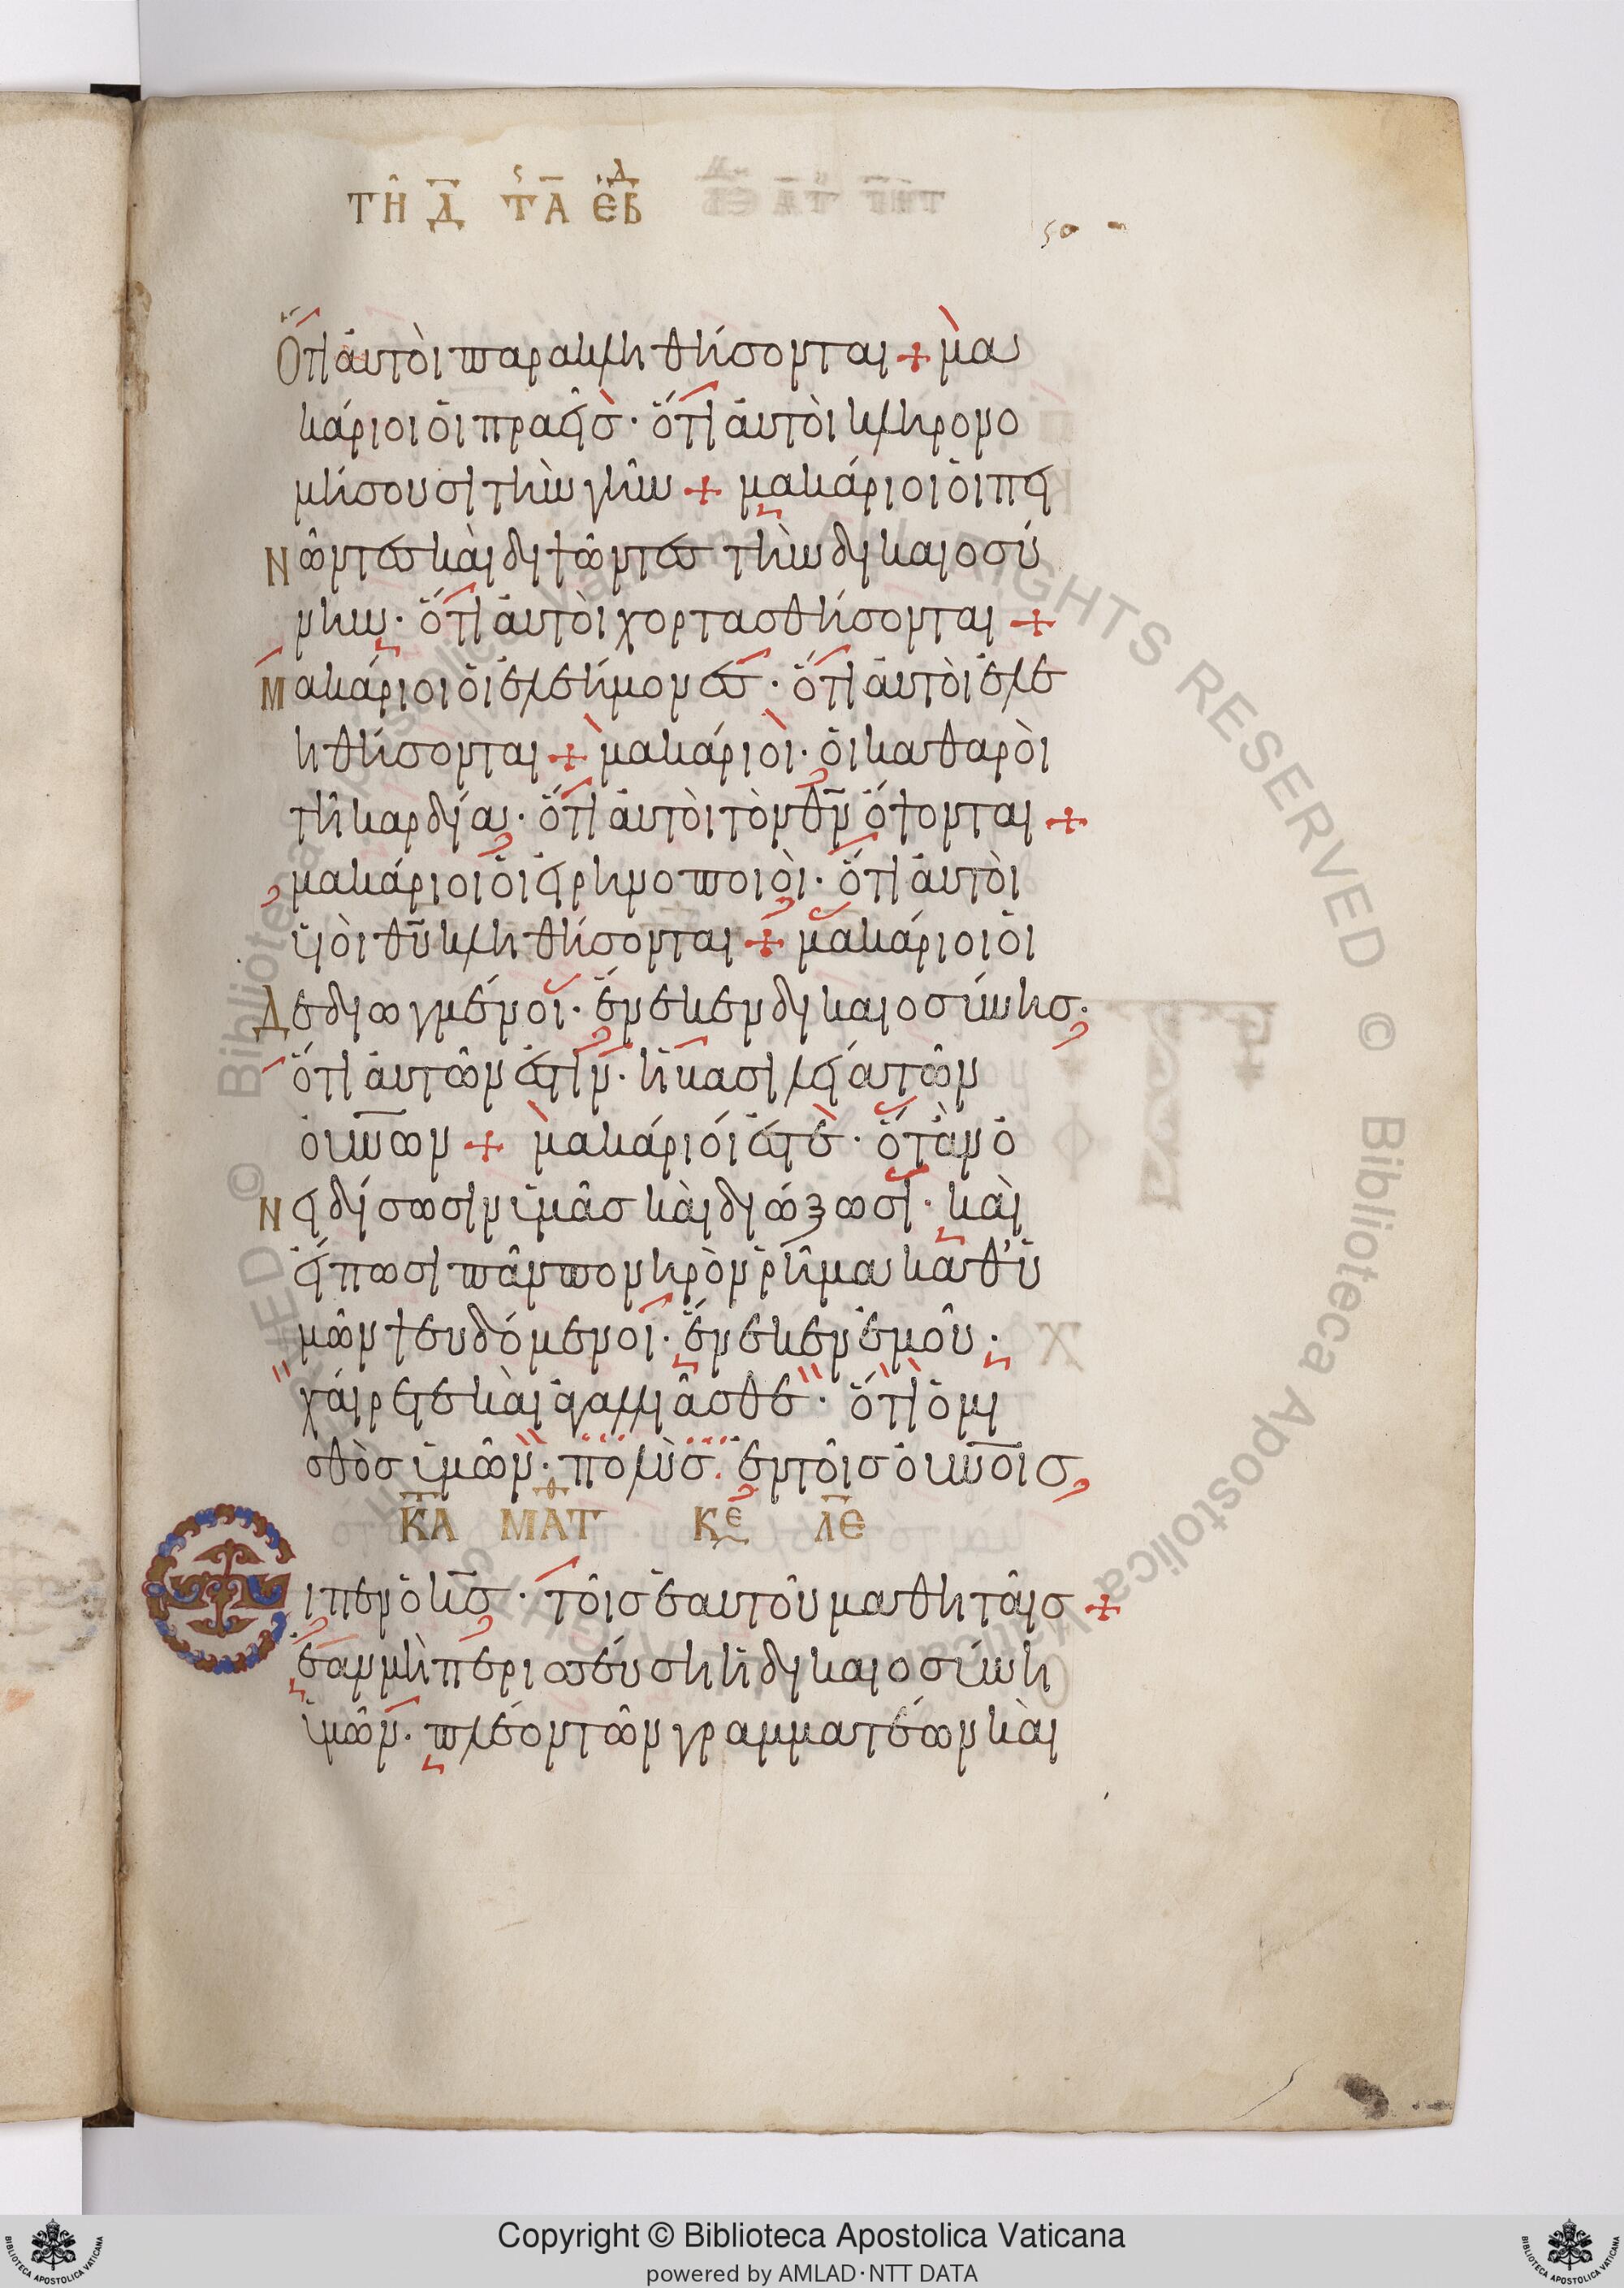 ΤΗ Δ̅ ΤΑ̅ ΕΒΔ
50
Ὅτι ἀυτὸι παρακληθήσονται + μα
κάριοι ὁι πραεῖσ· ὅτι ἀυτὸι κληρονο
μήσουσι τὴν γῆν + μακάριοι ὁι πει
Νῶντεσ κὰι διψῶντεσ τὴν δικαιοσύ
νην· ὅτι ἀυτὸι χορτασθήσονται +
Μακάριοι ὁι ἐλεήμονεσ· ὅτι ἀυτὸι ἐλε
ηθήσονται + μακάριοι· ὁι καθαρὸι
τῆ καρδία· ὅτι ἀυτὸι τὸν θ̅ν̅ ὄψονται +
μακάριοι ὁι εἰρηνοποιὸι· ὅτι ἀυτὸι
ὑιὸι θ̅υ̅ κληθήσονται + μακάριοι ὁι
Δεδιωγμένοι· ἕνεκεν δικαιοσύνησ·
ὅτι ἀυτῶν ἐστὶν· ἡ βασιλεία τῶν
ὀυν̅ω̅ν + μακάριόι ἐστε· ὅταν ὀ
Νειδίσωσιν ὑμᾶσ κὰι διώξωσι· κὰι
εἴπωσι πᾶν πονηρὸν ῥῆμα καθ' ὑ
μῶν ψευδόμενοι· ἕνεκεν ἐμοῦ·
χάιρετε κὰι ἀγαλλιᾶσθε· ὅτι ὁ μι
σθὸσ ὑμῶν· πολὺσ. ἐν τοῖσ ὀυν̅ο̅ισ
Κ̅Α̅ ΜΑΤΘ ΚΕ ΛΕ
Ειπεν ὁ κ̅σ̅· τοῖσ ἑαυτοῦ μαθηταῖσ +
ἐὰν μὴ περισσέυση ἡ δικαιοσύνη
ὑμῶν· πλέον τῶν γραμματέων κὰι
Copyright © Biblioteca Apostolica Vaticana
powered by AMLAD·NTT DATA